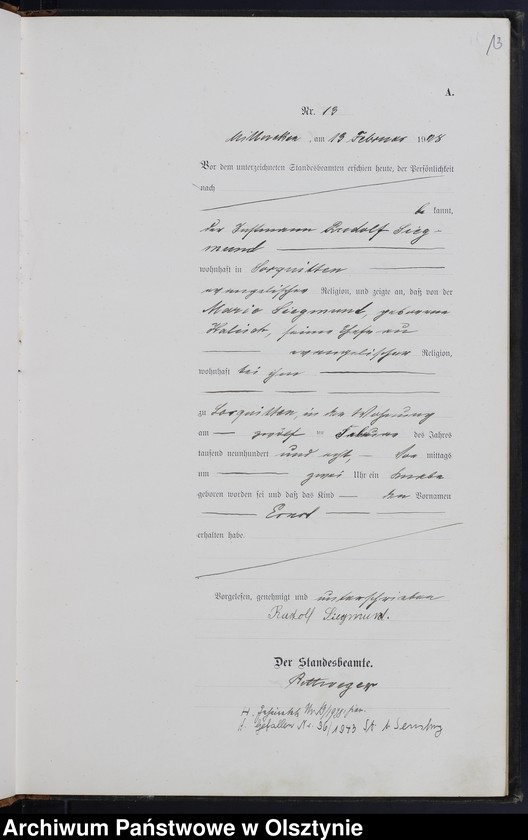 13
A.
Nr. 13
am 13 Februar 1908
Vor dem unterzeichneten Standesbeamten erschien heute, der Persönlichkeit
nach
be kannt,
der Instmann Rudolf Sieg-
mund
wohnhaft in Sorquitten
evangelischer Religion, und zeigte an, daß von der
Marie Siegmund, geborene
seiner Ehefrau
evangelischer Religion,
wohnhaft bei ihm
zu Sorquitten, in der Wohnung
am zwölf ten Februar des Jahres
tausend neunhundert und acht, Vor mittags
um zwei Uhr ein Knabe
geboren worden sei und daß das Kind den Vornamen
Ernst
erhalten habe.
Vorgelesen, genehmigt und unterschrieben
Rudolf Siegmund.
Der Standesbeamte.
Nr.
Gefallen Nr. 36/1943 St A Sensburg
Archiwum Państwowe w Olsztynie